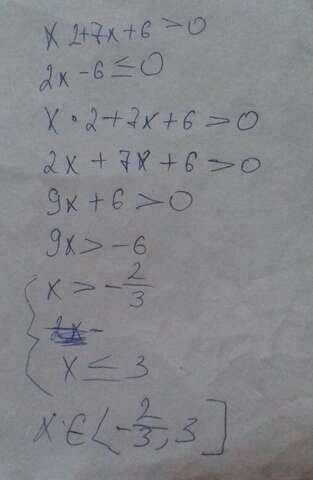 x 2+7x+6>0
2x-6≤0
x•2+7x+6>0
2x+7x+6>0
9x+6>0
9x>-6
x>-2/3
2x-
x≤3
x∈(-2/3,3]